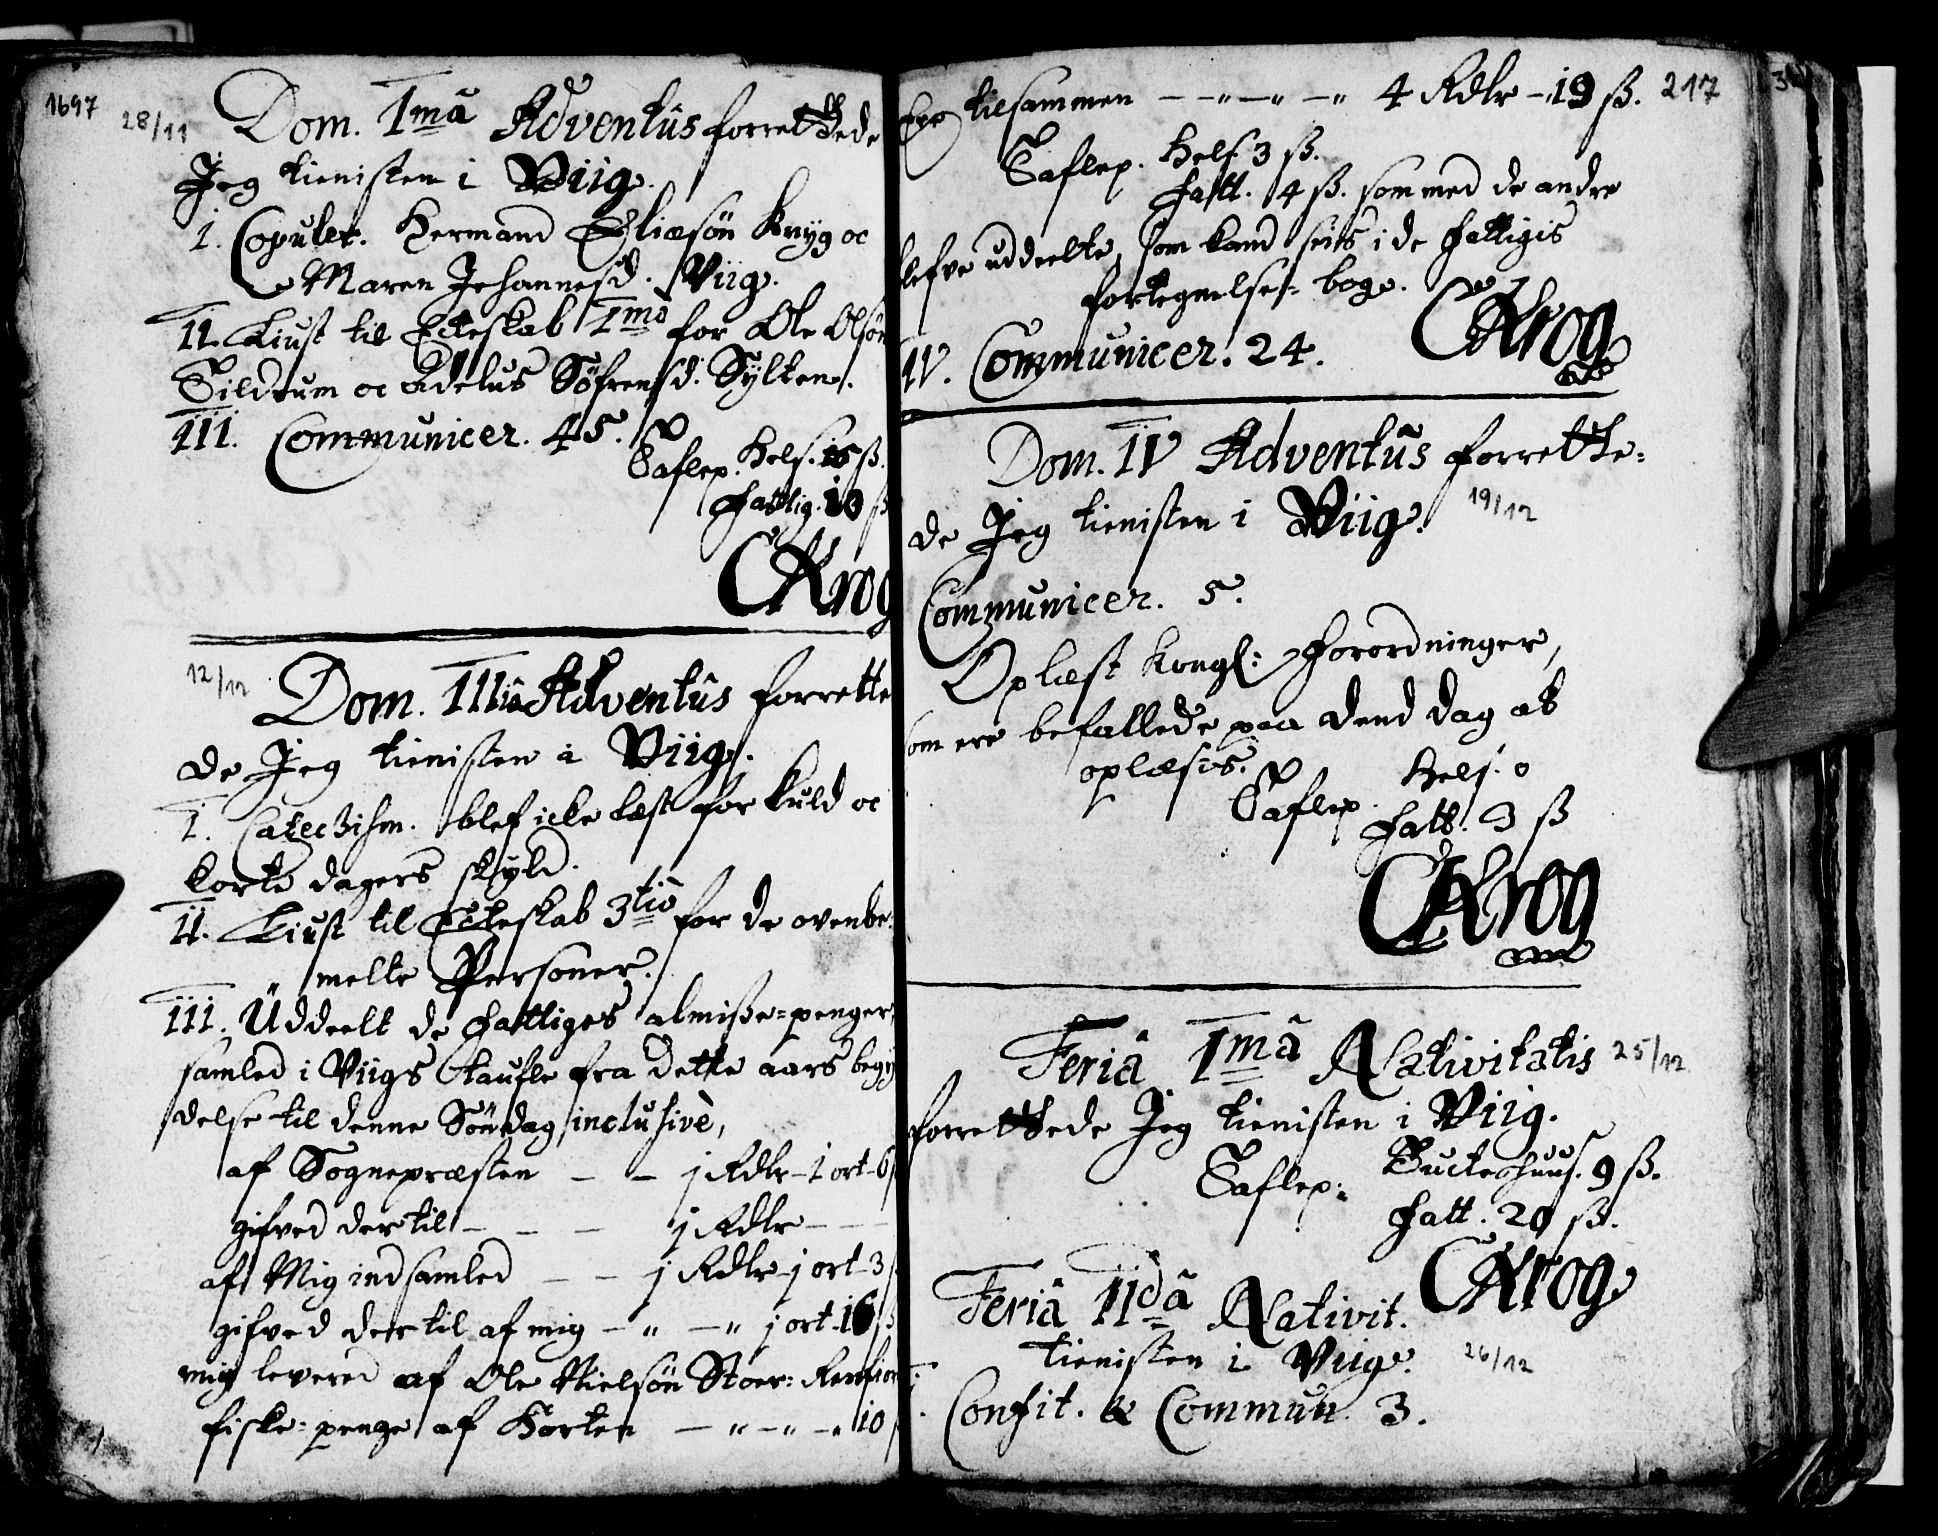 1697
28/11
Dom. 1mâ Adventûs forrettede
Jeg tienisten i Viig.
1. Copuler. Hermand Eliæsön Knyg oc
Maren Johannesd. Viig.
II. Liust til Ecteskab Imò for Ole Olsön
Sildrum oc Adelus Söfrensd. Sylten.
III. Communicer. 45.
Taflep. Hels. 16 ß.
Fattig. 10 ß
CKrog
12/12
Dom. IIIiâ Adventûs forrette
de Jeg tienisten i Viig.
I. Catechism. blef icke læst for kuld oc
korte dagers skyld.
II. Liust til Ecteskab 3tiò for de ovenbe-
melte Personer.
III. Uddeelt de Fattiges almisse-penger,
samled i Viigs Taufle fra dette aars begyn
delse til denne Söndag inclusivè,
af Sognepræsten – – j Rdlr – 1 ort – 6
gifved dertil – – – j Rdlr – –
af Mig indsamled – – j Rdlr – j ort – 3
gifved der til af mig – " – " j ort – 16 ß
mig levered af Ole Nielsön Stoer:
fiske-penge af Horten – " – " – " 10
217
tilsammen – " – " – " 4 Rdlr – 19 ß.
Taflep. Hels. 3 ß.
Fatt. 4 ß. som med de andre
blefve uddeelte, som kand seis i de Fattigis
fortegnelse-bog.
IV. Communicer. 24.
CKrog
Dom. IV Adventûs forrette-
de Jeg tienisten i Viig.
19/12
Communicer. 5.
Oplæst Kongl: Forordninger,
som ere befallede paa dend dag at
oplæsis.
Taflep. Hels. 0
Fatt. 3 ß
CKrog
Feriâ 1mâ Nativitatis
25/12
forrettede Jeg tienisten i Viig.
Taflep: 9 ß.
Fatt. 20 ß.
CKrog
Feriâ IIdâ Nativit.
tienisten i Viig.
26/12
Confit. & Commun. 3.